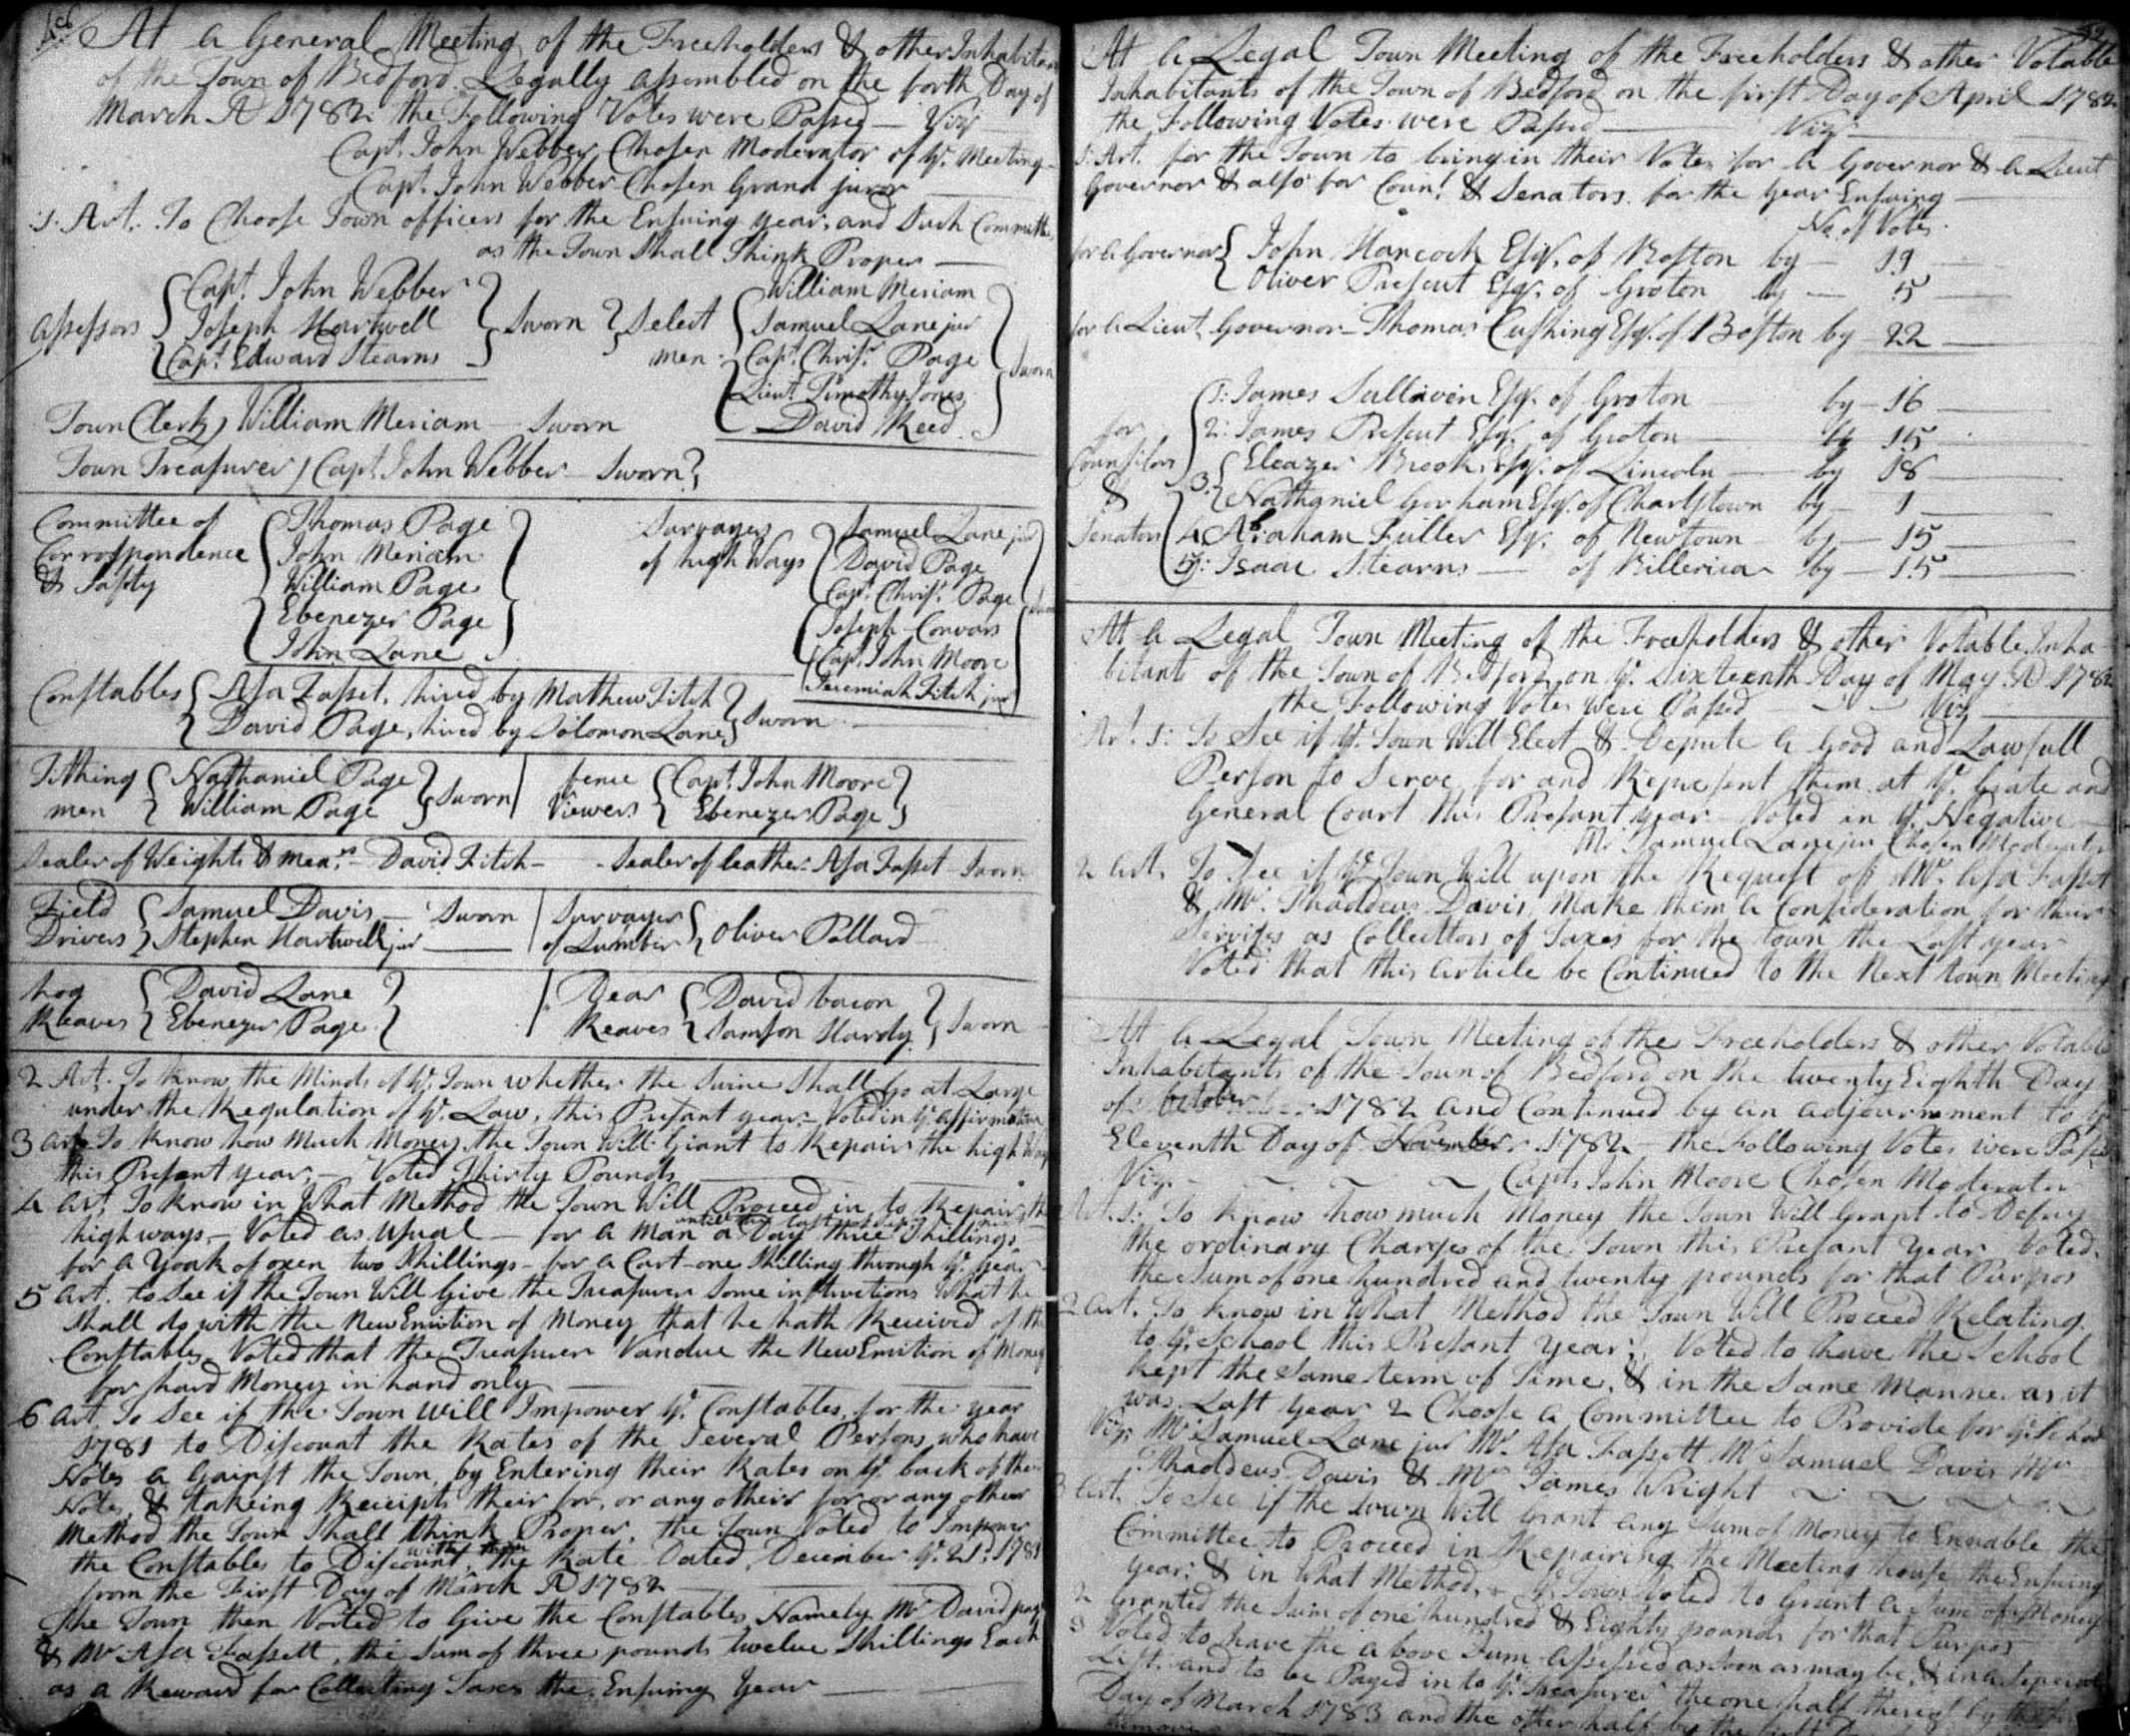 At a General Meeting of the Freeholders & other Inhabitan
of the Town of Bedford Legally assembled on the forth Day of
March AD 1782 the Following Votes were Passed — Viz
Capt. John Webber Chosen Moderator of ye. Meeting
Capt. John Webber Chosen Grand juror
1: Art. To Choose Town officers for the Ensuing year, and Such Committe
as the Town Shall Think Proper —
assessors { Capt. John Webber
Joseph Hartwell
Capt. Edward Stearns } Sworn
Select men { William Meriam
Samuel Lane jur
Capt. Chrisr. Page
Lieut Timothy Jones
David Reed } Sworn
Town Clerk) William Meriam — Sworn
Town Treasurer) Capt. John Webber — Sworn
Committee of
Correspondence
& Safty { Thomas Page
John Meriam
William Page
Ebenezer Page
John Lane }
Survayers
of high Ways { Samuel Lane jur
David Page
Capt. Chrisr. Page
Joseph Convars
Capt. John Moore
Jeremiah Fitch jur }
Constables { Asa Fasset, hired by Mathew Fitch
David Page, hired by Solomon Lane } Sworn
Tithing
men { Nathaniel Page
William Page } Sworn
fence
Viewers { Capt. John Moore
Ebenezer Page }
Sealer of Weights & Meas. — David Fitch — Sealer of leather — Asa Fasset — Sworn
Field
Drivers { Samuel Davis — Sworn
Stephen Hartwell jur —
Survayer
of Lumber { Oliver Pollard
hog
Reaves { David Lane
Ebenezer Page }
Dear
Reaves { David bacon
Samson Hardy } Sworn
2 Art. To know the Minds of ye. Town whether the Swine Shall Go at Large
under the Regulation of ye. Law, this Presant year — Voted in ye. affirmative
3 art. To know how Much Money the Town Will Grant to Repair the high Ways
this Presant year, — Voted Thirty Pounds
4 art. To know in What Method the Town Will Proceed in to Repair the
high ways, — Voted as Usual — for a Man a Day three Shillings
for a Yoak of oxen two Shillings — for a Cart — one Shilling through ye. year
5 art. to See if the Town Will Give the Treasurer Some instructions What he
Shall do with the New Emition of Money that he hath Received of the
Constables Voted that the Treasurer Vandue the New Emition of Money
for hard Money in hand only
6 art. To See if the Town Will Impower ye. Constables, for the year
1781 to Discount the Rates of the Several Persons who have
Notes a Gainst the Town, by Entering their Rates on ye. back of their
Notes, & takeing Receipts their for, or any other
Method the Town Shall think Proper, the Town Voted to Impower
the Constables to Discount with them the Rate Dated, December ye. 21st. 1781
from the First Day of March AD 1782
the Town then Voted to Give the Constables Namely Mr David page
& Mr Asa Fassett, the Sum of three pounds twelve Shillings Each
as a Reward for Collecting Taxes the Ensuing Year
At a Legal Town Meeting of the Freeholders & other Votable
Inhabitants of the Town of Bedford on the first Day of April 1782
the Following Votes were Passed — Viz
1: Art. for the Town to bring in their Votes for a Governor & a Lieut
Governor & also for Counl. & Senators for the year Ensuing —
No. of Votes
for a Governor { John Hancock Esqr. of Boston by — 19
Oliver Prescut Esqr. of Groton by — 5
for a Lieut Governor — Thomas Cushing Esqr. of Boston by — 22
for
Counsilors
&
Senators
1: James Sullivin Esqr. of Groton by — 16
2: James Prescut Esqr. of Groton — by 15
3: { Eleazer Brooks Esqr. of Lincoln — by 18
Nathaniel Gorham Esqr. of Charlstown by — 1
4: Abraham Fuller Esqr. of Newtown by — 15
5: Isaac Stearns — of Billerica by — 15
At a Legal Town Meeting of the Freeholders & other Votable Inha
bitants of the Town of Bedford on ye. Sixteenth Day of May AD 1782
the Following Votes were Passed — Viz
Art. 1: To See if ye. Town Will Elect & Depute a Good and Lawfull
Person to Serve for and Represent them at ye. Grate and
General Court this Presant year — Voted in ye. Negative —
Mr Samuel Lane jur Chosen Moderator
2 art. To See if ye. Town Will upon the Request of Mr. Asa Fasset
& Mr. Thaddeus Davis, Make them a Consideration for their
Servises as Collecttors of Taxes for the town the Last year
Voted that this article be Continued to the Next town Meeting
At a Legal Town Meeting of the Freeholders & other Votable
Inhabitants of the Town of Bedford on the twenty Eighth Day
of October 1782 and Continued by an adjournment to ye
Eleventh Day of November 1782 the Following Votes were Passed
Viz — Capt. John Moore Chosen Moderator
Art. 1: To know how much Money the Town Will Grant to Defray
the ordinary Charges of the Town this Presant Year Voted
the Sum of one hundred and twenty pounds for that Purpos
2 art. To know in What Method the Town Will Proceed Relating
to ye. School this Presant Year; Voted to have the School
kept the Same term of Time, & in the Same Manner as it
was Last year 2 Choose a Committee to Provide for ye. School
Viz: Mr Samuel Lane jur Mr. Asa Fassett Mr Samuel Davis Mr
Thaddeus Davis & Mr James Wright
3 art. To See if the town Will Grant any Sum of Money to Enable the
Committee to Proceed in Repairing the Meeting house the Ensuing
year; & in what Method, ye. Town Voted to Grant a Sum of Money
2 Granted the Sum of one hundred & Eighty pounds for that Purpos
3 Voted to have the above Sum assessed as soon as may be, & in a Seperate
List. and to be Payed in to ye. Treasurer the one half thereof by the
Day of March 1783 and the other half by the first